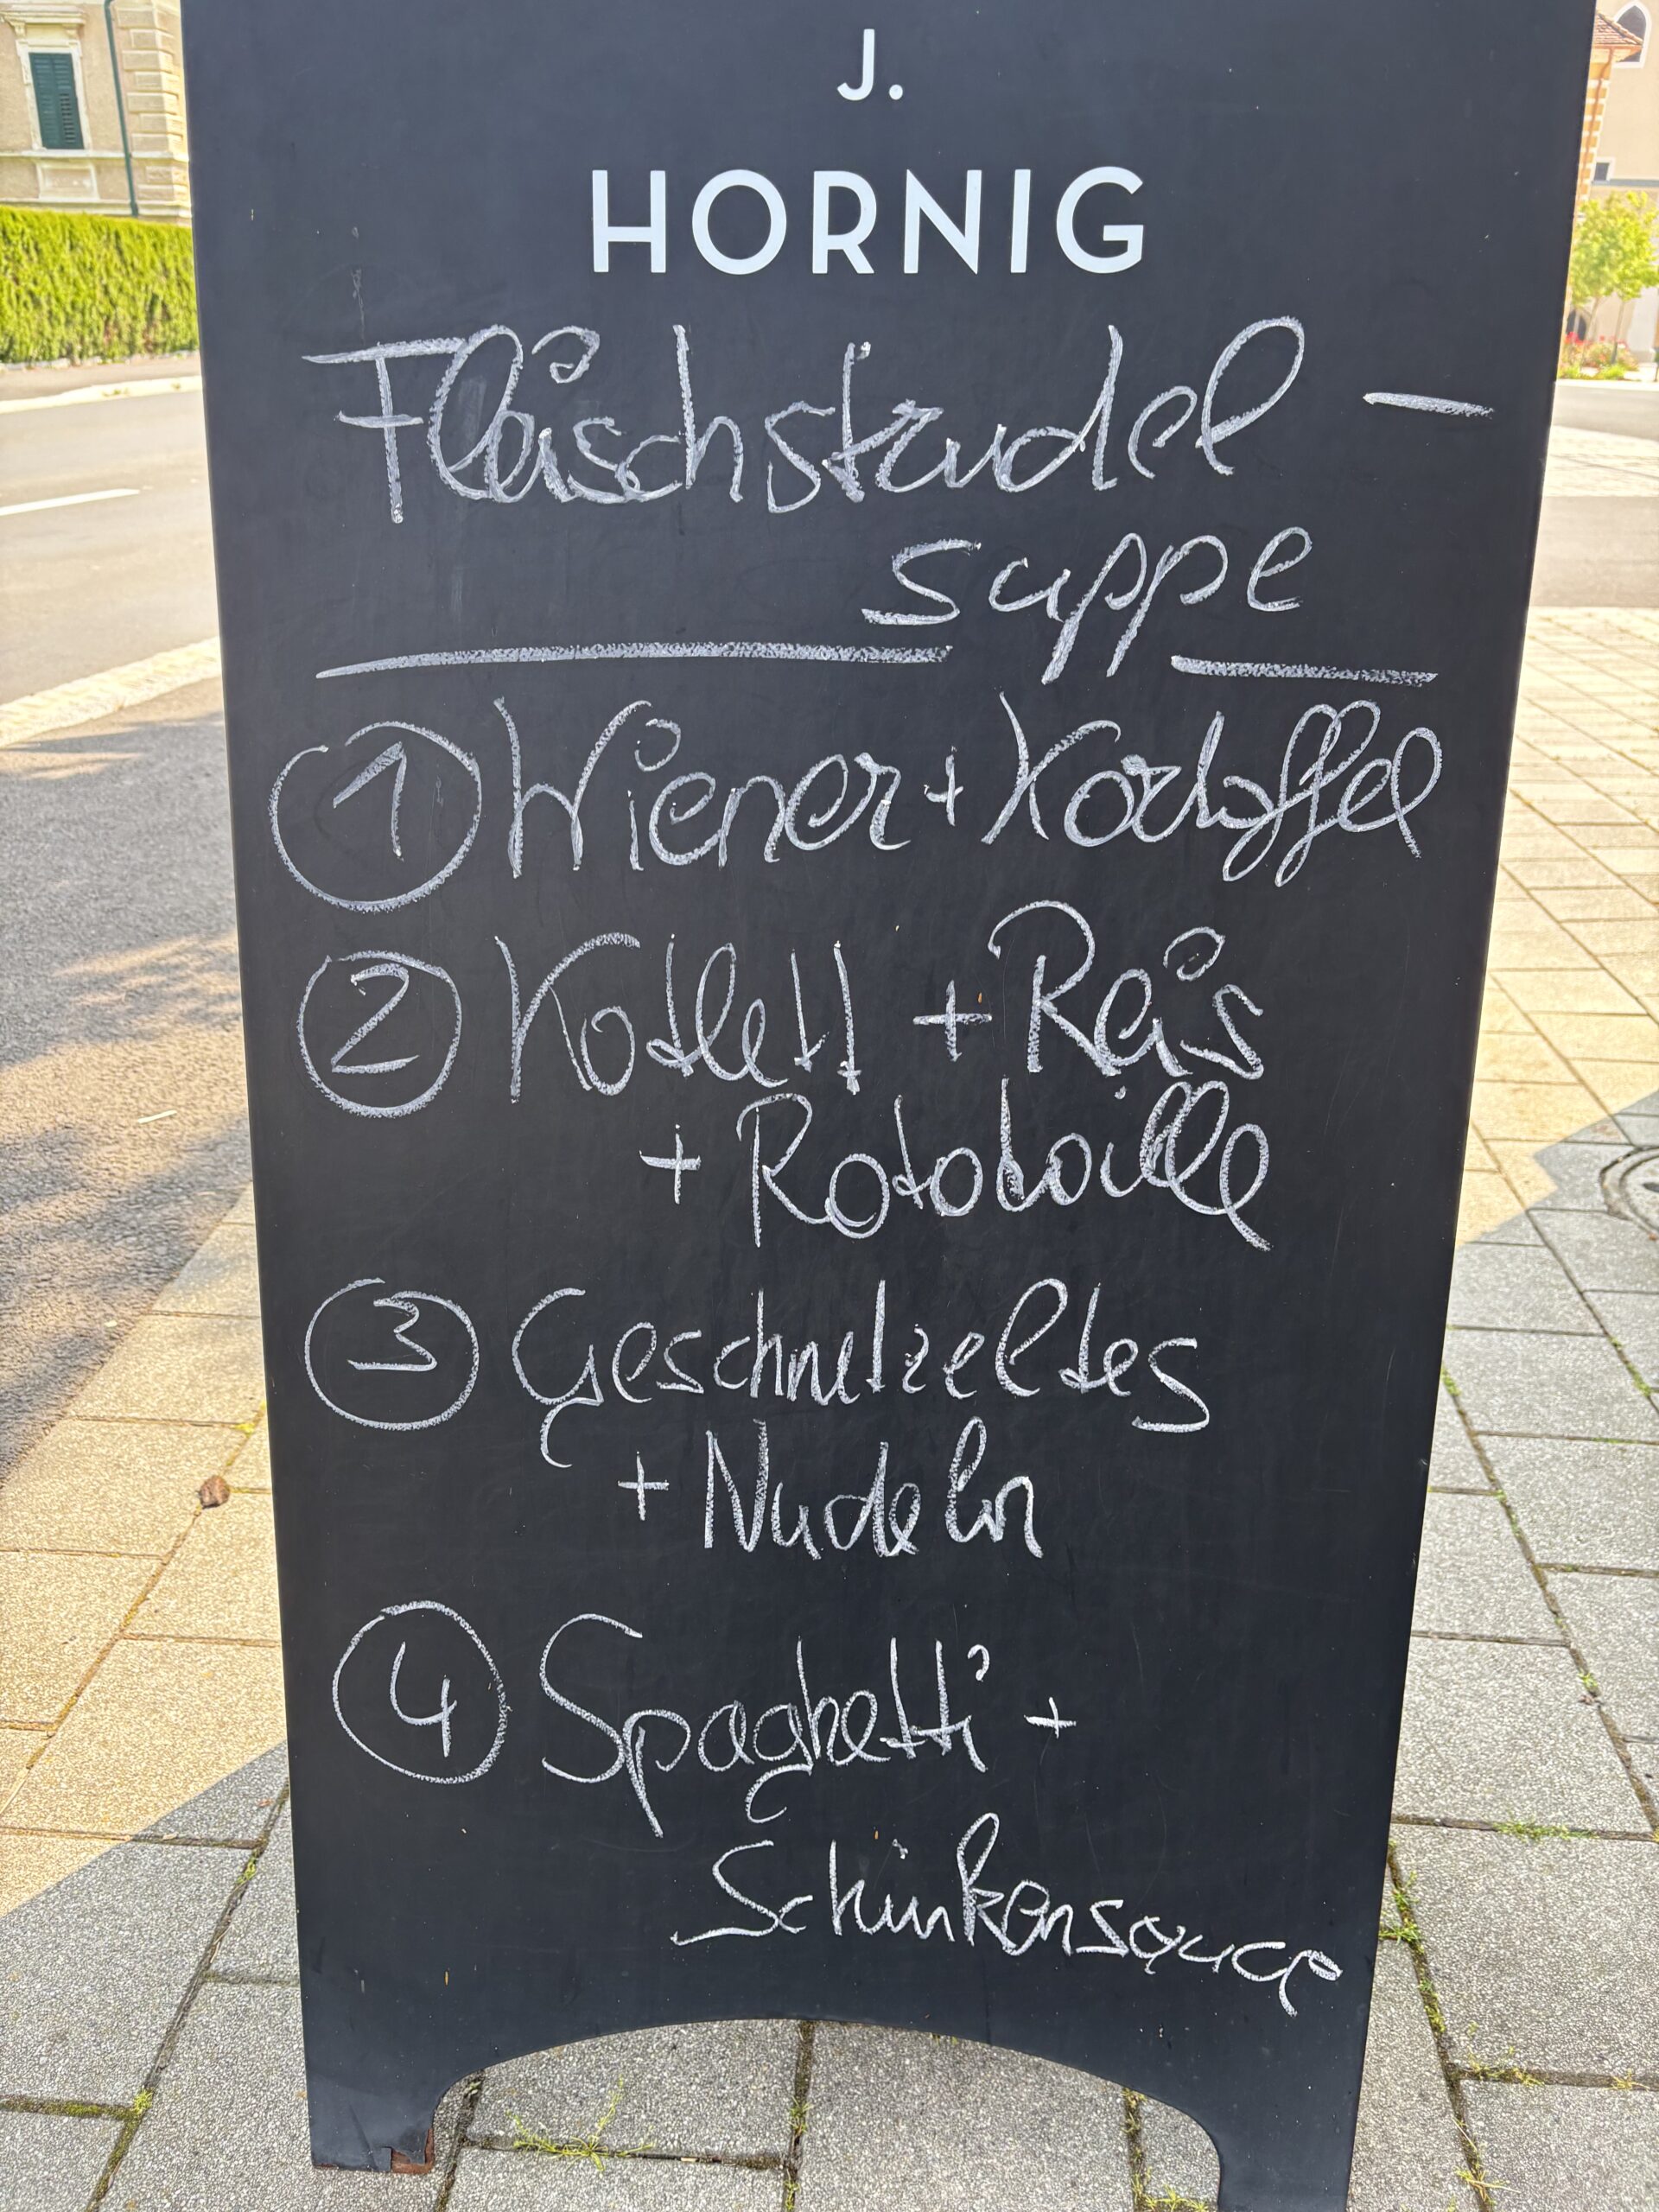 J.
HORNIG
Fleischstrudel -
suppe
1 Wiener + Kartoffel
2 Kotlett + Reis
+ Ratatouille
3 Geschnetzeltes
+ Nudeln
4 Spaghetti +
Schinkensauce